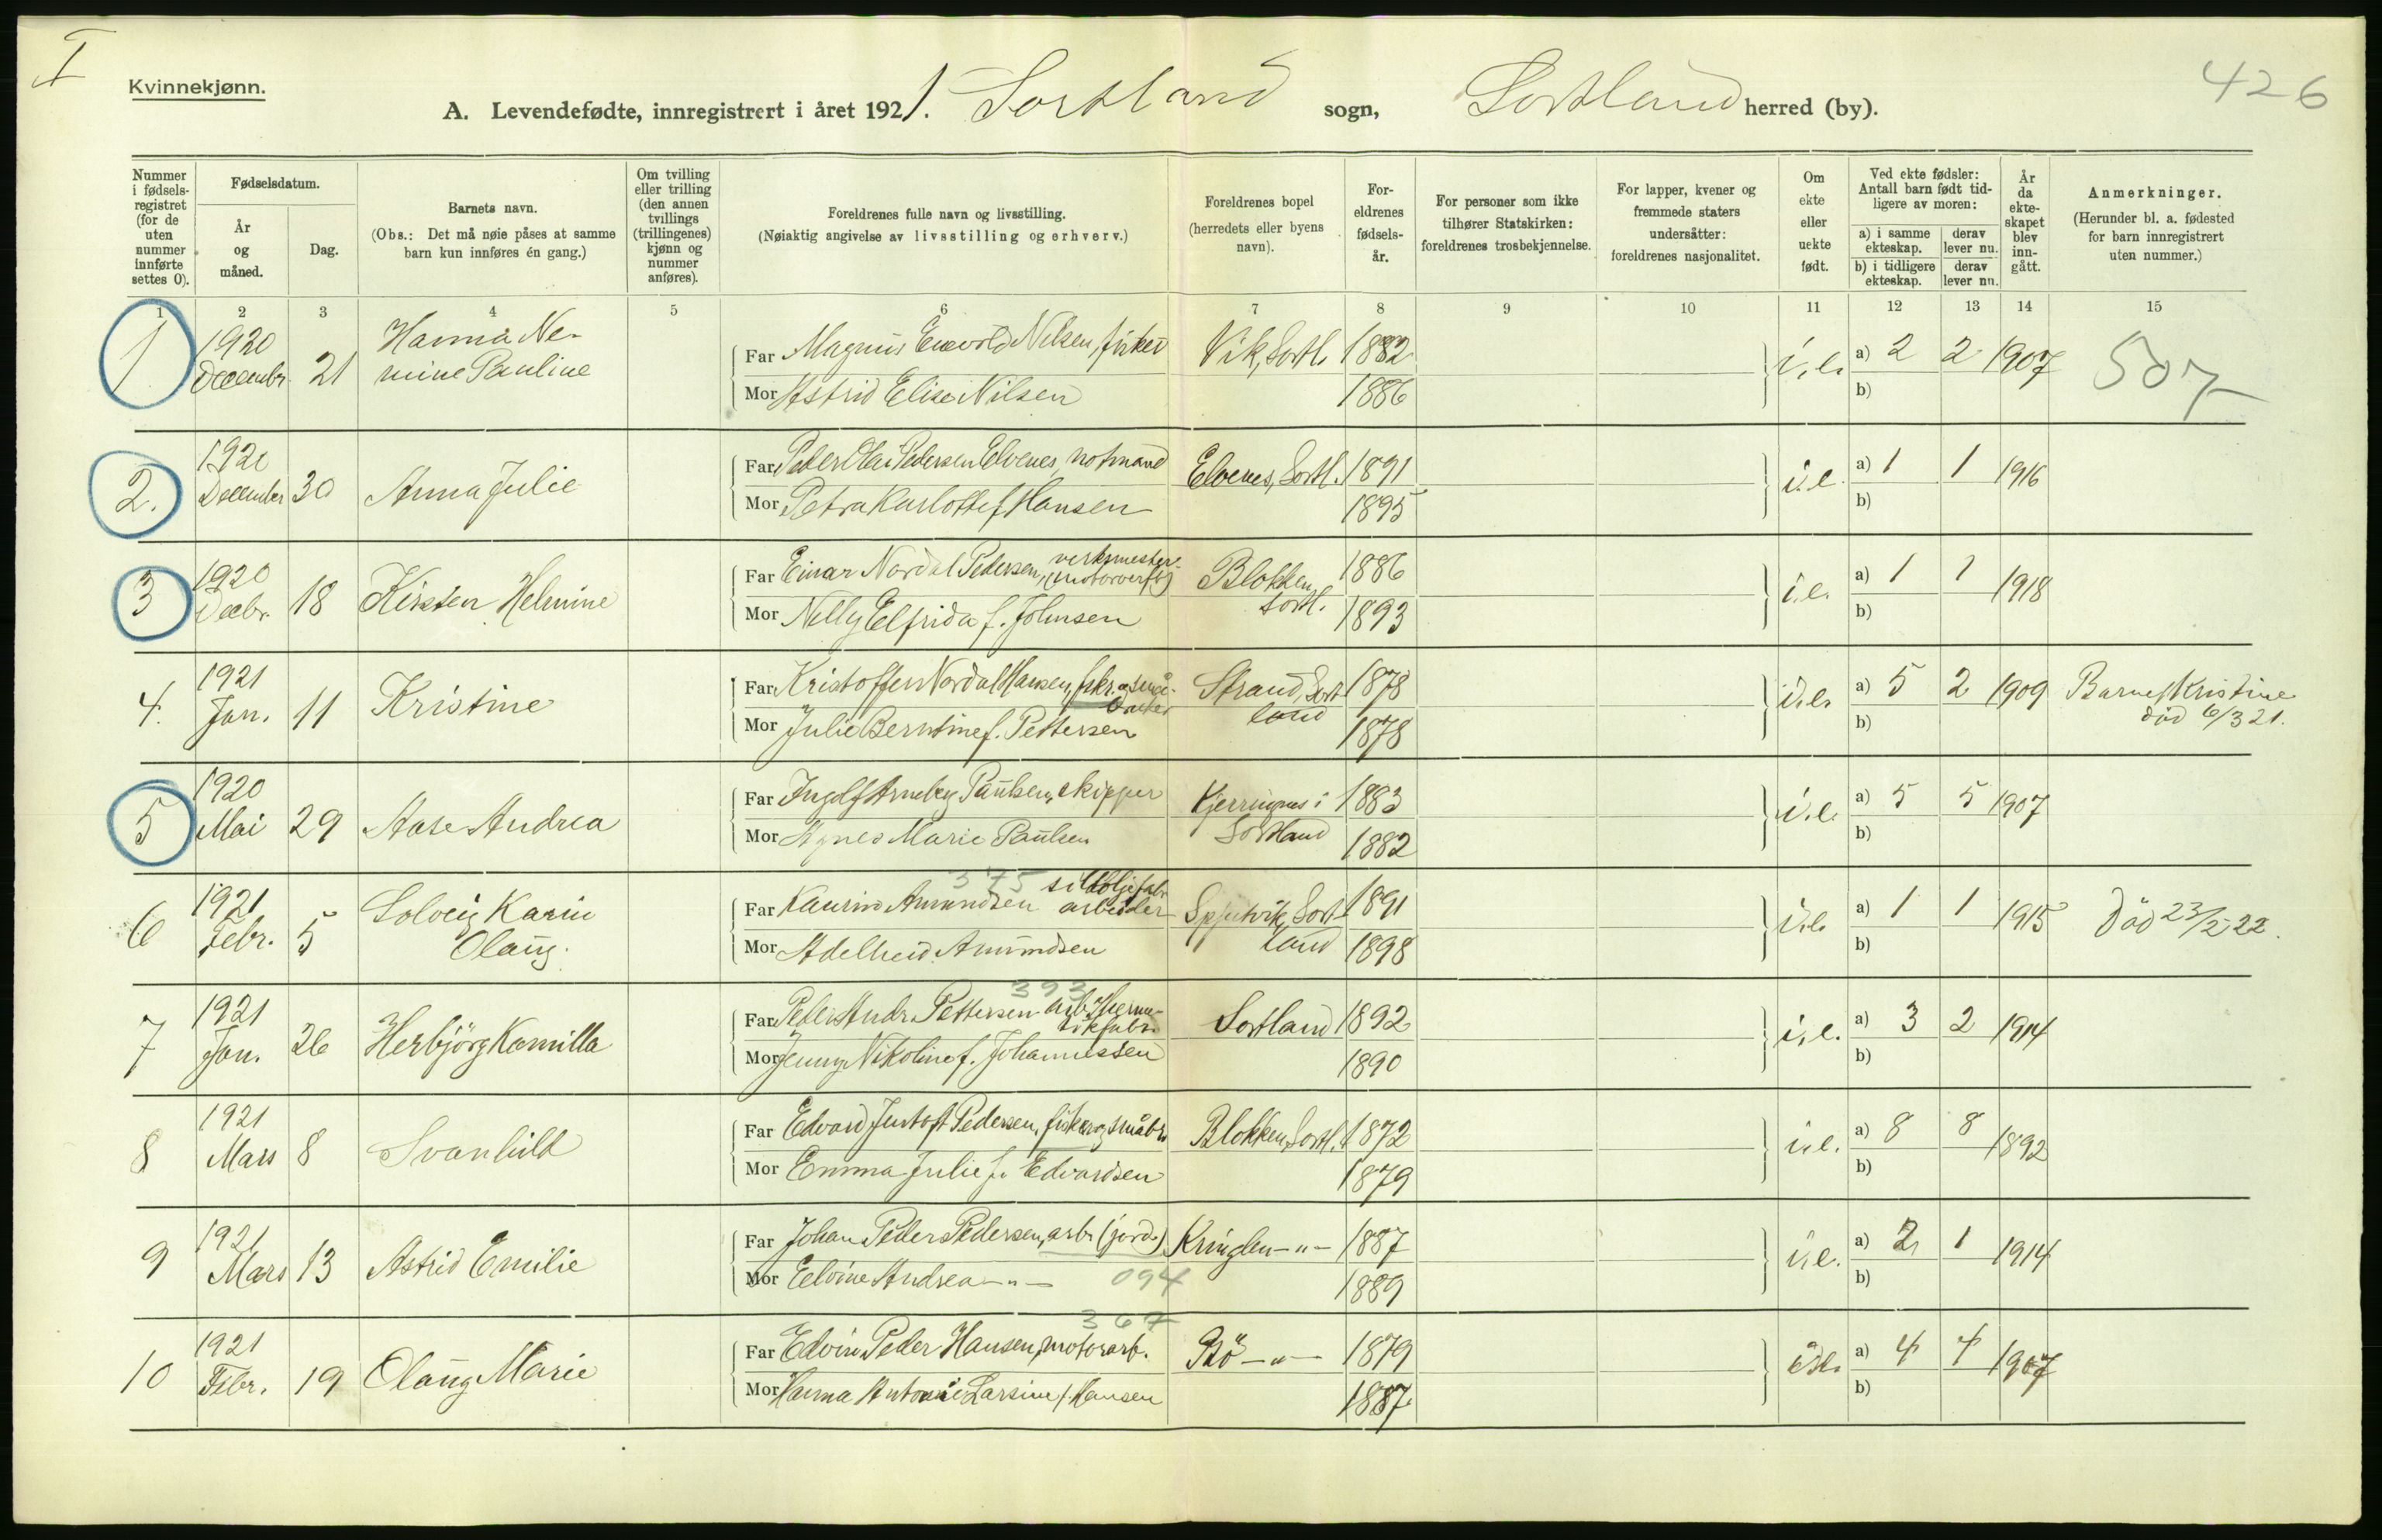 I
Kvinnekjønn.
426
A. Levendefødte, innregistrert i året 1921. Sortland sogn, Sortland herred (by).
Nummer i fødsels-registret (for de uten nummer innførte settes 0).
Fødselsdatum.
År og måned.
Dag.
Barnets navn.
(Obs.: Det må nøie påses at samme barn kun innføres én gang.)
Om tvilling eller trilling (den annen tvillings (trillingenes) kjønn og nummer anføres).
Foreldrenes fulle navn og livsstilling.
(Nøiaktig angivelse av livsstilling og erhverv.)
Foreldrenes bopel (herredets eller byens navn).
For-eldrenes fødsels-år.
For personer som ikke tilhører Statskirken: foreldrenes trosbekjennelse.
For lapper, kvener og fremmede staters undersåtter: foreldrenes nasjonalitet.
Om ekte eller uekte født.
Ved ekte fødsler: Antall barn født tid-ligere av moren:
a) i samme ekteskap.
derav lever nu.
b) i tidligere ekteskap.
derav lever nu.
År da ekte-skapet blev inn-gått.
Anmerkninger.
(Herunder bl. a. fødested for barn innregistrert uten nummer.)
1 2 3 4 5 6 7 8 9 10 11 12 13 14 15
1 1920 Decembr. 21 Hanna Ne-
mine Pauline
Far Magnus Enevold Nilsen, fisker Vik, Sortl. 1882 i.e. a) 2 2 1907 507
Mor Astrid Elise Nilsen 1886 b)
2. 1920 December 30 Anna Julie
Far Peder Olai Pedersen Elvenes, notmand Elvenes, Sortl. 1891 i.e. a) 1 1 1916
Mor Petra Karlotte f. Hansen 1895 b)
3 1920 Decbr. 18 Kirsten Helmine
Far Einar Nordal Pedersen, verksmester (motorverk) Blokken, Sortl. 1886 i.e. a) 1 1 1918
Mor Nelly Elfrida f. Johnsen 1893 b)
4. 1921 Jan. 11 Kristine
Far Kristoffer Nordal Hansen, fiskr. og små-bruker Strand, Sortland 1878 i.e. a) 5 2 1909 Barnet Kristine
død 6/3 21.
Mor Julie Berntine f. Pettersen 1878 b)
5 1920 Mai 29 Aase Andrea
Far Ingolf Arneberg Paulsen, skipper Kjerringnes i Sortland 1883 i.e. a) 5 5 1907
Mor Agnes Marie Paulsen 1882 b)
375
6 1921 Febr. 5 Solveig Karin
Olaug.
Far Laurits Amundsen sildoljefabr. arbeider Sortland 1891 i.e. a) 1 1 1915 Død 23/2 22.
Mor Adelheid Amundsen 1898 b)
393
7 1921 Jan. 26 Herbjörg Kamilla
Far Peder Andr. Pettersen arb. Sortland 1892 i.e. a) 3 2 1914
Mor Jenny Nikoline f. Johannessen 1890 b)
8 1921 Mars 8 Svanhild
Far Edvard Justoft Pedersen, fisker og småbr. Blokken, Sortl. 1872 i.e. a) 8 8 1892
Mor Emma Julie f. Edvardsen 1879 b)
9 1921 Mars 13 Astrid Emilie
Far Johan Peder Pedersen, arb. (jord.) Kringlen -"- 1887 i.e. a) 2 1 1914
Mor Elvine Andrea -"- 094 1889 b)
367
10 1921 Febr. 19 Olaug Marie
Far Edvin Peder Hansen, motorarb. Bö -"- 1879 i.e. a) 4 4 1907
Mor Hanna Antonie Larsine f. Hansen 1887. b)